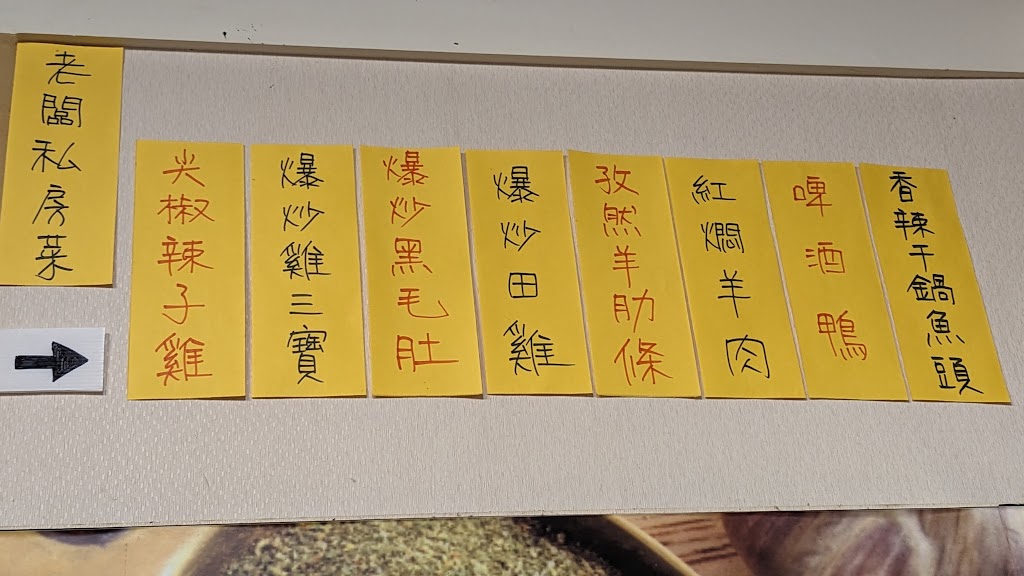 老闆私房菜
尖椒辣子雞
爆炒雞三寶
爆炒黑毛肚
爆炒田雞
孜然羊肋條
紅燜羊肉
啤酒鴨
香辣干鍋魚頭